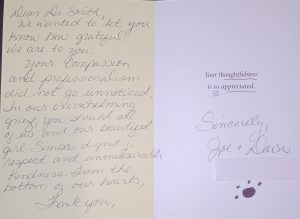 Dear Dr. Smith,
We wanted to let you
know how grateful
we are to you.
Your compassion
and professionalism
did not go unnoticed.
In our overwhelming
grief, you showed all
of us and our beautiful
girl Simba dignity,
respect and unmeasurable
kindness. From the
bottom of our hearts,
Thank you,
Your thoughtfulness
is so appreciated.
Sincerely,
Joe + Dawn